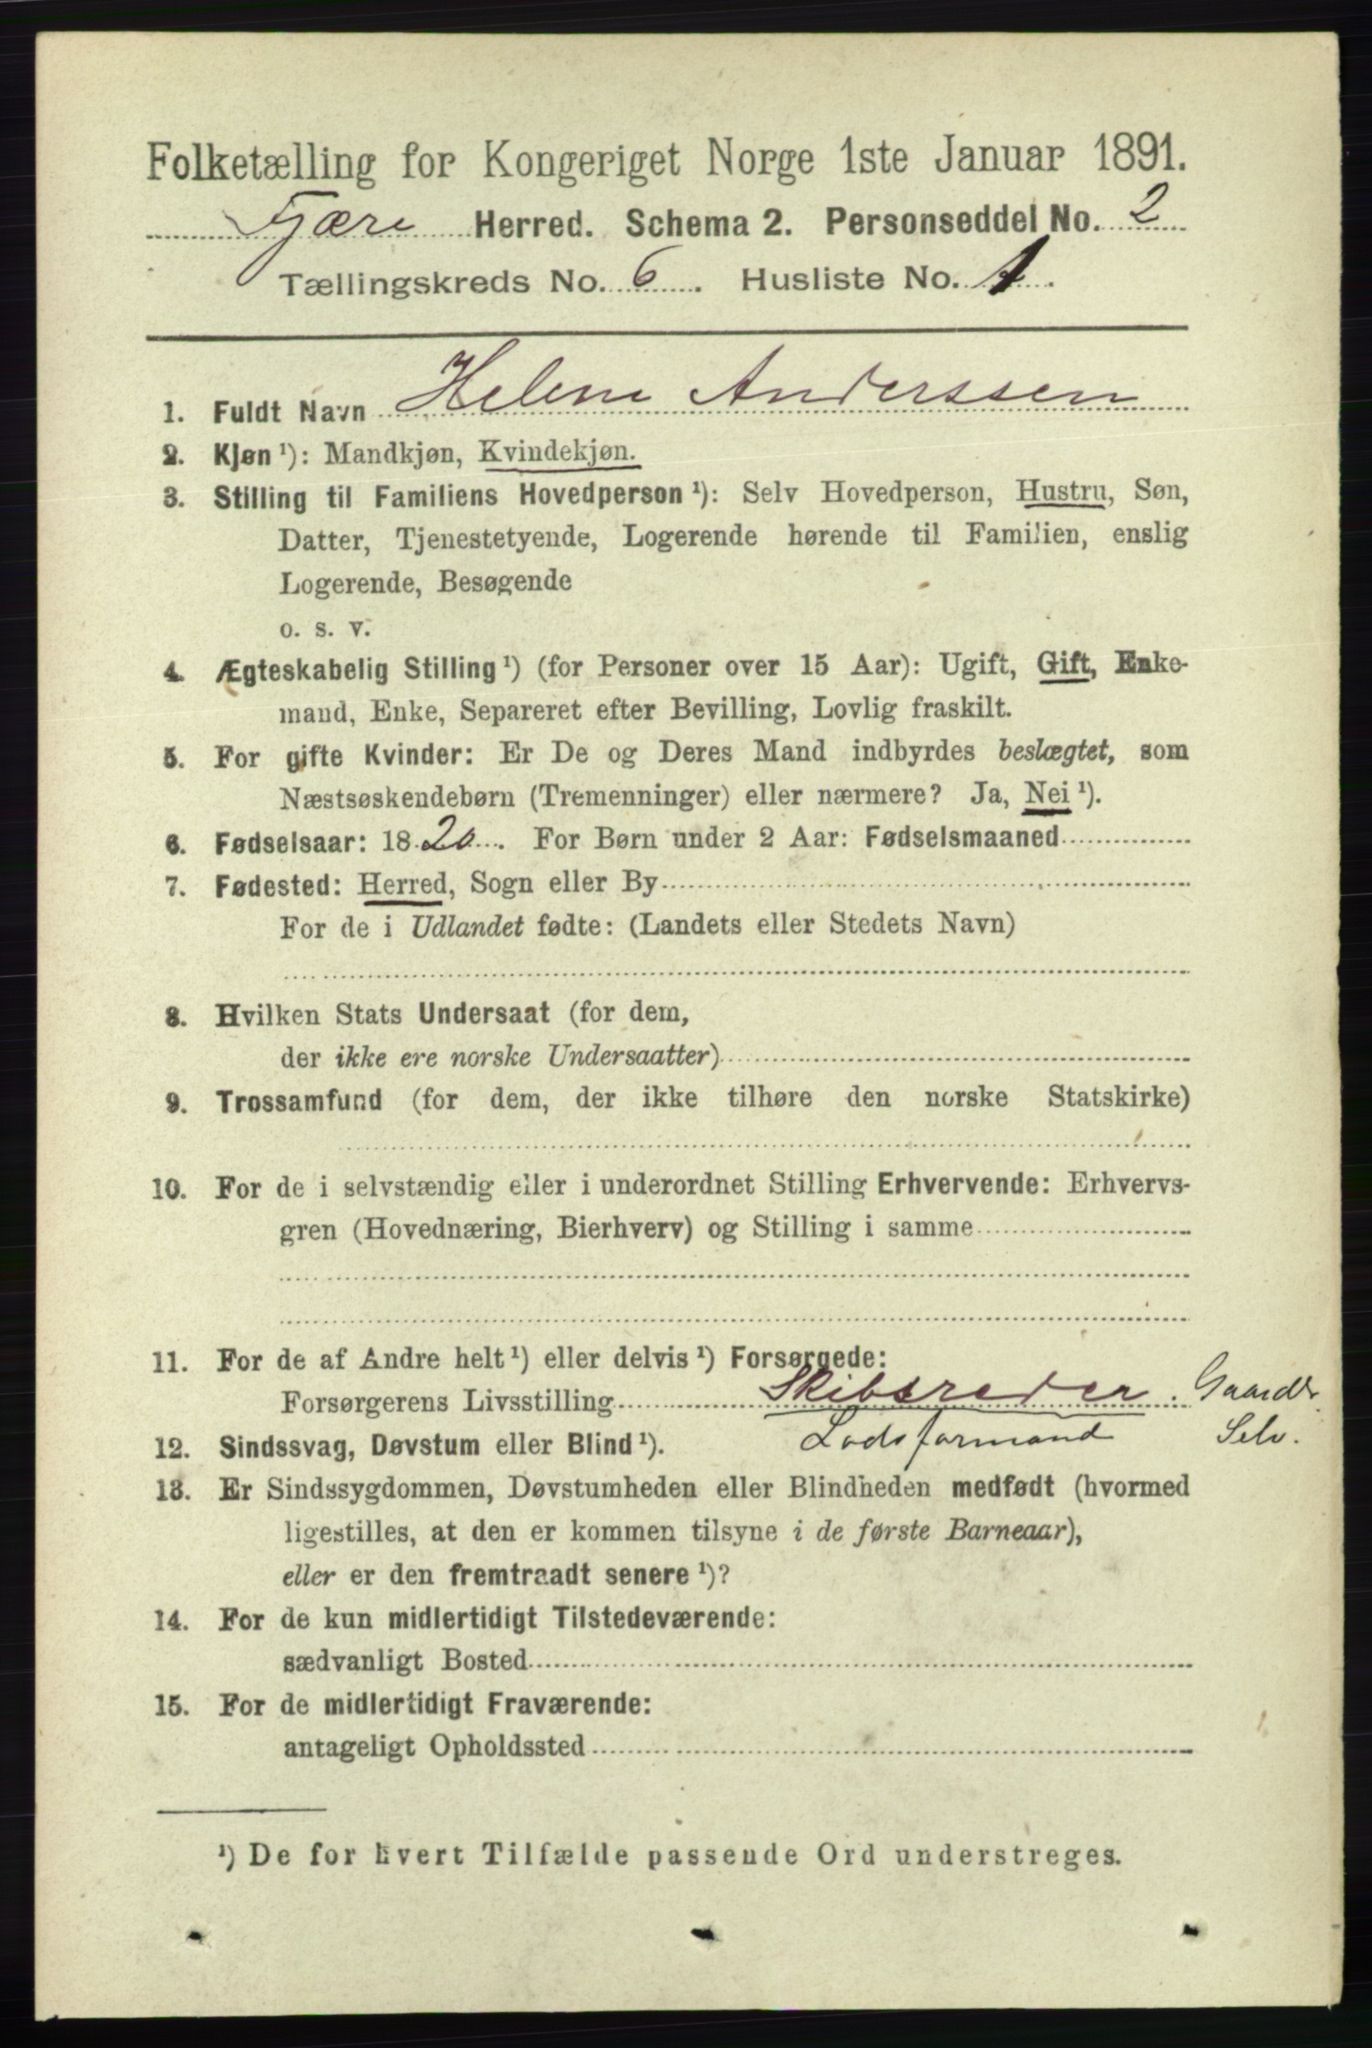 Folketælling for Kongeriget Norge 1ste Januar 1891.
Fjære Herred. Schema 2. Personseddel No. 2
Tællingskreds No. 6. Husliste No. 1.
1. Fuldt Navn Helene Anderssen
2. Kjøn ¹): Mandkjøn, Kvindekjøn.
3. Stilling til Familiens Hovedperson ¹): Selv Hovedperson, Hustru, Søn,
Datter, Tjenestetyende, Logerende hørende til Familien, enslig
Logerende, Besøgende
o. s. v.
4. Ægteskabelig Stilling ¹) (for Personer over 15 Aar): Ugift, Gift, Enke-
mand, Enke, Separeret efter Bevilling, Lovlig fraskilt.
5. For gifte Kvinder: Er De og Deres Mand indbyrdes beslægtet, som
Næstsøskendebørn (Tremenninger) eller nærmere? Ja, Nei ¹).
6. Fødselsaar: 1820. For Børn under 2 Aar: Fødselsmaaned
7. Fødested: Herred, Sogn eller By
For de i Udlandet fødte: (Landets eller Stedets Navn)
8. Hvilken Stats Undersaat (for dem,
der ikke ere norske Undersaatter)
9. Trossamfund (for dem, der ikke tilhøre den norske Statskirke)
10. For de i selvstændig eller i underordnet Stilling Erhvervende: Erhvervs-
gren (Hovednæring, Bierhverv) og Stilling i samme
11. For de af Andre helt ¹) eller delvis ¹) Forsørgede:
Forsørgerens Livsstilling Skibsreder. Gaardbr.
12. Sindssvag, Døvstum eller Blind ¹). Lodsformand Selv.
13. Er Sindssygdommen, Døvstumheden eller Blindheden medfødt (hvormed
ligestilles, at den er kommen tilsyne i de første Barneaar),
eller er den fremtraadt senere ¹)?
14. For de kun midlertidigt Tilstedeværende:
sædvanligt Bosted
15. For de midlertidigt Fraværende:
antageligt Opholdssted
¹) De for hvert Tilfælde passende Ord understreges.